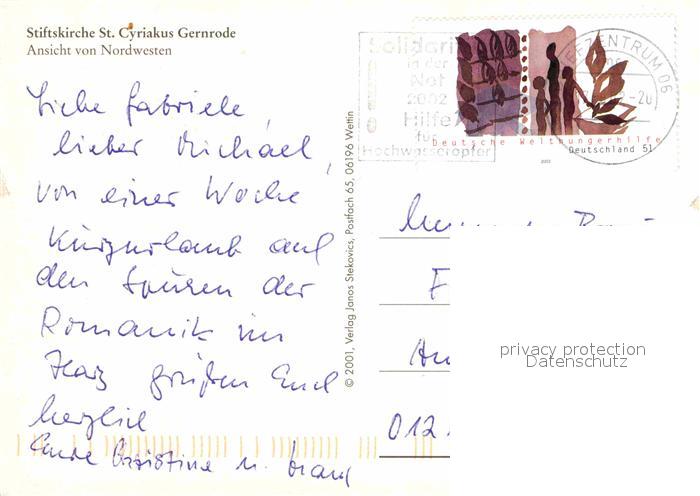 Stiftskirche St. Cyriakus Gernrode
Ansicht von Nordwesten
Liebe Gabriele,
lieber Michael,
von einer Woche
Kurzurlaub auf
den Spuren der
Romanik im
Harz grüßen Euch
herzlich
Eure Christine u.
© 2001, Verlag Janos Stekovics, Postfach 65, 06196 Wettin
Solidarität
in der
Not
2002
Hilfe
für
Hochwasseropfer
BRIEFZENTRUM 06
Deutsche Welthungerhilfe
Deutschland 51
2002
An
012
privacy protection
Datenschutz